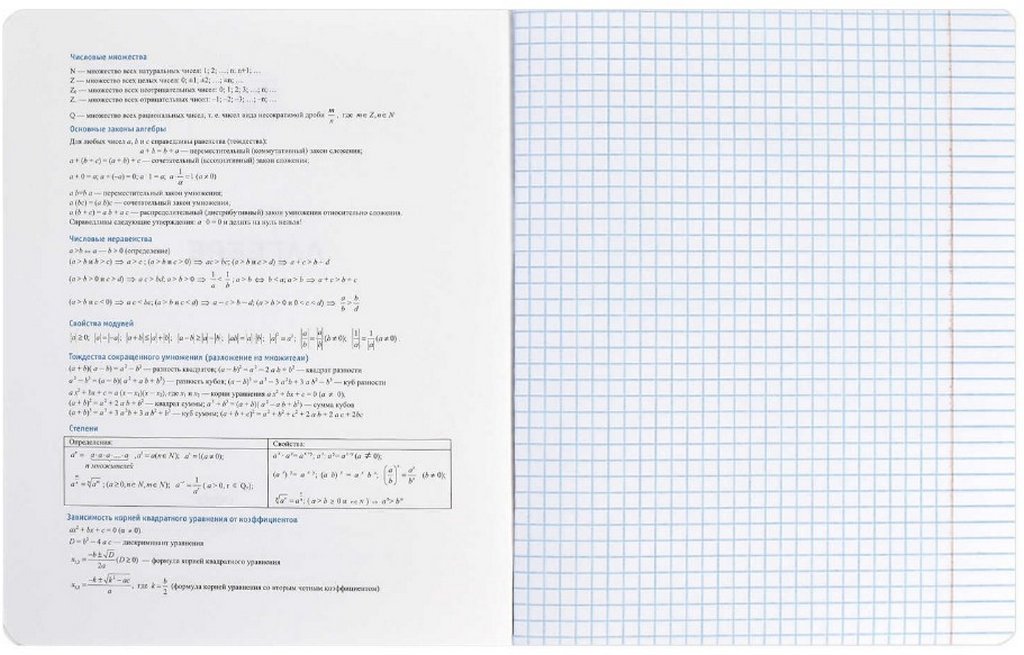 Числовые множества
N — множество всех натуральных чисел: 1; 2; …; n; n+1; …
Z — множество всех целых чисел: 0; ±1; ±2; …; ±n; …
Z₀ — множество всех неотрицательных чисел: 0; 1; 2; 3; …; n; …
Z₋ — множество всех отрицательных чисел: –1; –2; –3; …; –n; …
Q — множество всех рациональных чисел, т. е. чисел вида несократимой дроби m/n, где m∈Z, n∈N
Основные законы алгебры
Для любых чисел a, b и c справедливы равенства (тождества):
a + b = b + a — переместительный (коммутативный) закон сложения;
a + (b + c) = (a + b) + c — сочетательный (ассоциативный) закон сложения;
a + 0 = a; a + (–a) = 0; a · 1 = a; a · 1/a = 1 (a ≠ 0)
a b=b a — переместительный закон умножения;
a (bc) = (a b)c — сочетательный закон умножения;
a (b + c) = a b + a c — распределительный (дистрибутивный) закон умножения относительно сложения.
Справедливы следующие утверждения: a · 0 = 0 и делить на нуль нельзя!
Числовые неравенства
a > b ⇔ a — b > 0 (определение)
(a > b и b > c) ⟹ a > c; (a > b и c > 0) ⟹ ac > bc; (a > b и c > d) ⟹ a + c > b – d
(a > b > 0 и c > d) ⟹ a c > bd; a > b > 0 ⟹ 1/a < 1/b; a > b ⇔ b < a; a > b ⟹ a + c > b + c
(a > b и c < 0) ⟹ a c < bc; (a > b и c < d) ⟹ a – c > b – d; (a > b > 0 и 0 < c < d) ⟹ a/b > b/d
Свойства модулей
|a| ≥ 0; |a| = |–a|; |a+b| ≤ |a|+|b|; |a–b| ≥ |a|–|b|; |ab| = |a|·|b|; |a|² = a²; |a/b| = |a|/|b| (b ≠ 0); |1/a| = 1/|a| (a ≠ 0)
Тождества сокращенного умножения (разложение на множители)
(a + b)( a – b) = a² – b² — разность квадратов; (a – b)² = a² – 2 a b + b² — квадрат разности
a³ – b³ = (a – b)( a² + a b + b²) — разность кубов; (a – b)³ = a³ – 3 a²b + 3 a b² – b³ — куб разности
a x² + bx + c = a (x – x₁)(x – x₂), где x₁ и x₂ — корни уравнения a x² + bx + c = 0 (a ≠ 0).
(a + b)² = a² + 2 a b + b² — квадрат суммы; a³ + b³ = (a + b)( a² – a b + b²) — сумма кубов
(a + b)³ = a³ + 3 a²b + 3 a b² + b³ — куб суммы; (a + b + c)² = a² + b² + c² + 2 a b + 2 a c + 2bc
Степени
Определения:
aⁿ = a·a·a·…·a, a¹ = a (n ∈ N); a⁰ = 1 (a ≠ 0);
n множителей
Свойства:
(a ≠ 0);
(a/b)ˣ = aˣ/bˣ (b ≠ 0);
Зависимость корней квадратного уравнения от коэффициентов
ax² + bx + c = 0 (a ≠ 0).
D = b² – 4 a c — дискриминант уравнения
x₁,₂ = (–b ± √D)/2a (D ≥ 0) — формула корней квадратного уравнения
x₁,₂ = (–k ± √(k² – ac))/a, где k = b/2 (формула корней уравнения со вторым четным коэффициентом)